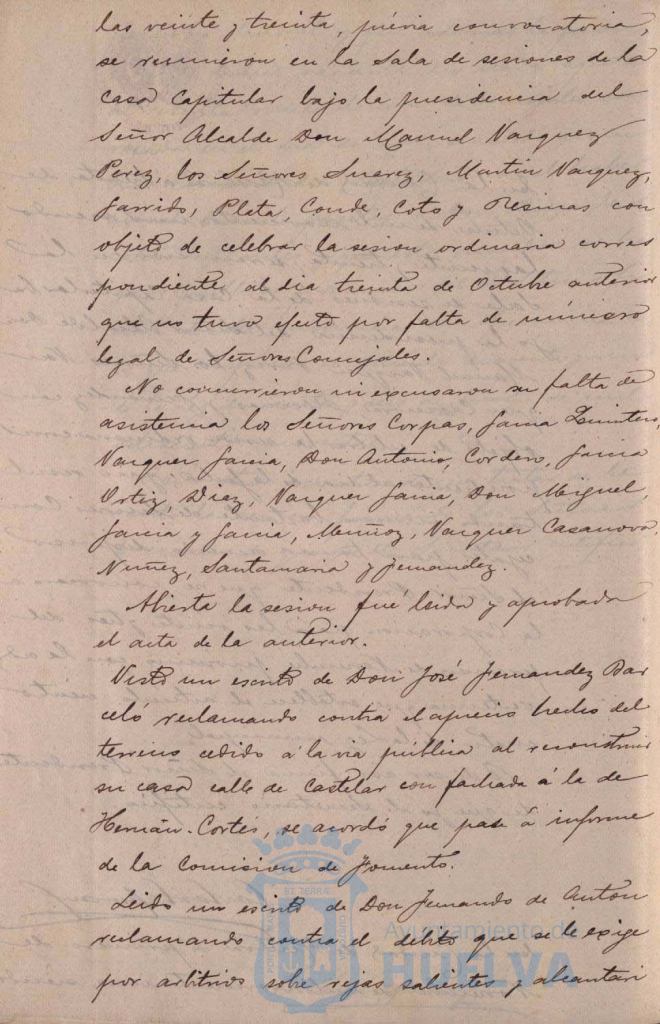 las veinte y treinta, prévia convocatoria,
se reunieron en la Sala de sesiones de la
casa Capitular bajo la presidencia del
Señor Alcalde Don Manuel Vazquez
Perez, los Señores Suarez, Martin Vazquez,
Garrido, Plata, Conde, Coto y Resinas con
objeto de celebrar la sesion ordinaria corres
pondiente al dia treinta de Octubre anterior
que no tuvo efecto por falta de número
legal de Señores Concejales.
No concurrieron ni excusaron su falta de
asistencia los Señores Corpas, Garcia Quintero,
Vazquez Garcia, Don Antonio, Cordero, Garcia
Ortiz, Diaz, Vazquez Garcia, Don Miguel,
Garcia y Garcia, Muñoz, Vazquez Casanova,
Nuñez, Santamaria y Fernandez.
Abierta la sesion fué leida y aprobada
el acta de la anterior.
Visto un escrito de Don José Fernandez Bar
celó reclamando contra el aprecio hecho del
terreno cedido á la via pública al reconstruir
su casa calle de Castelar con fachada á la de
Hernán-Cortés, se acordó que pase á informe
de la Comision de Fomento.
Leido un escrito de Don Fernando de Anton
reclamando contra el débito que se le exige
por arbitrios sobre rejas salientes y alcantari
Ayuntamiento de
HUELVA